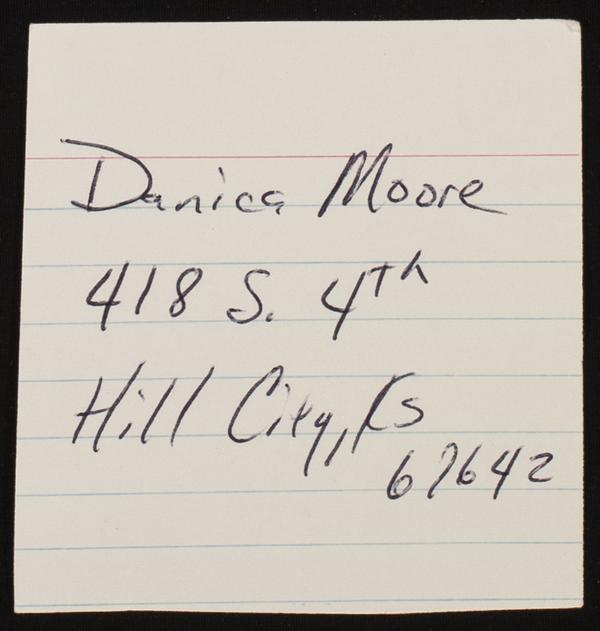 Danica Moore
418 S. 4th
Hill City, Ks
67642